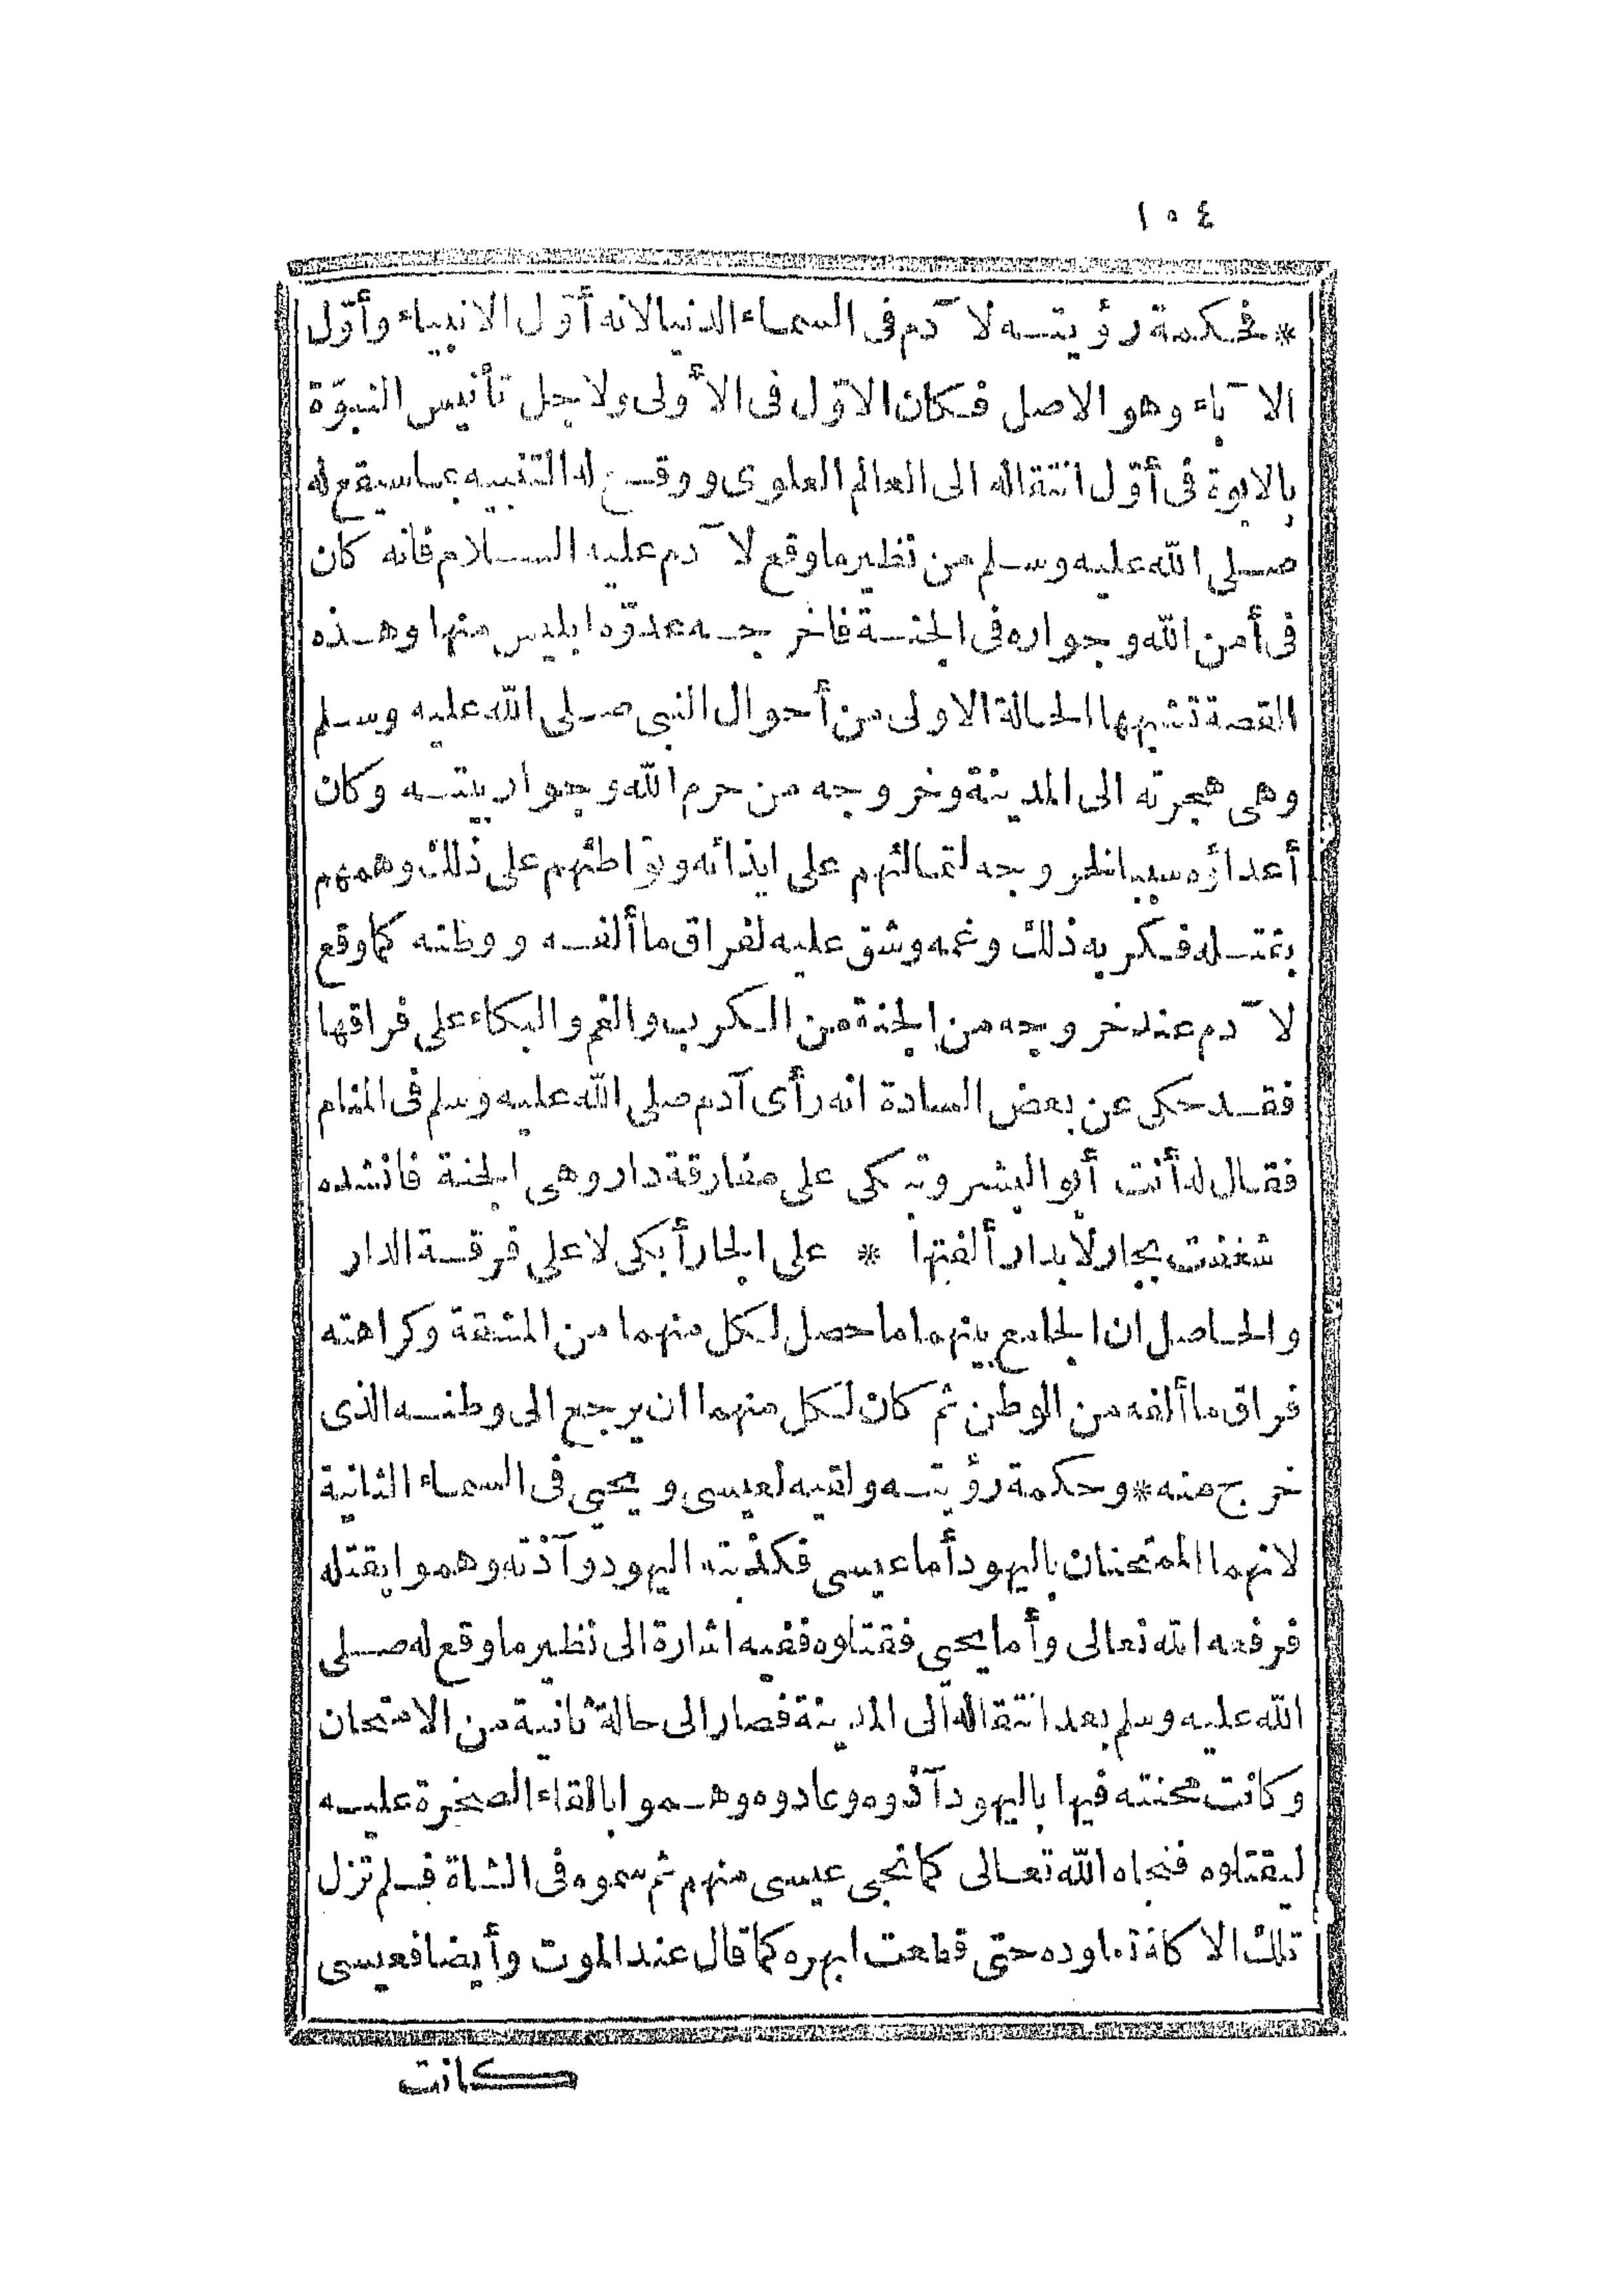 ١٠٤
* فحكمة رؤيته لآدم فى السماء الدنيا لانه أوّل الانبياء وأوّل
الآباء وهو الاصل فكان الاوّل فى الأولى ولاجل تأنيس النبوّة
بالابوة فى أوّل انتقاله الى العالم العلوى ووقع له التنبيه بماسيقع له
صلى الله عليه وسلم من نظير ماوقع لآدم عليه السلام فانه كان
فى أمن الله وجواره فى الجنة فاخرجه عدوّه ابليس منها وهذه
القصة تشبهها الحالة الاولى من أحوال النبى صلى الله عليه وسلم
وهى هجرته الى المدينة وخروجه من حرم الله وجوار بيته وكان
أعداؤه سببا لخروجه لتمالئهم على ايذائه وتواطئهم على ذلك وهمهم
بقتله فكربه ذلك وغمه وشق عليه لفراق ماألفه ووطنه كماوقع
لآدم عند خروجه من الجنة من الكرب والغم والبكاء على فراقها
فقد حكى عن بعض السادة انه رأى آدم صلى الله عليه وسلم فى المنام
فقال له أنت أبو البشر وتبكى على مفارقة دار وهى الجنة فانشده
شغفت بجار لا بدار ألفتها * على الجار أبكى لا على فرقة الدار
والحاصل ان الجامع بينهما ما حصل لكل منهما من المشقة وكراهته
فراق ماألفه من الوطن ثم كان لكل منهما ان يرجع الى وطنه الذى
خرج منه * وحكمة رؤيته ولقيه لعيسى ويحيى فى السماء الثانية
لانهما الممتحنان باليهود أما عيسى فكذبته اليهود وآذته وهموا بقتله
فرفعه الله تعالى وأما يحيى فقتلوه ففيه اشارة الى نظير ماوقع له صلى
الله عليه وسلم بعد انتقاله الى المدينة فصار الى حالة ثانية من الامتحان
وكانت محنته فيها باليهود آذوه وعادوه وهموا بالقاء الصخرة عليه
ليقتلوه فنجاه الله تعالى كما نجى عيسى منهم ثم سموه فى الشاة فلم تزل
تلك الاكلة تعاوده حتى قطعت ابهره كما قال عند الموت وأيضا فعيسى
كانت